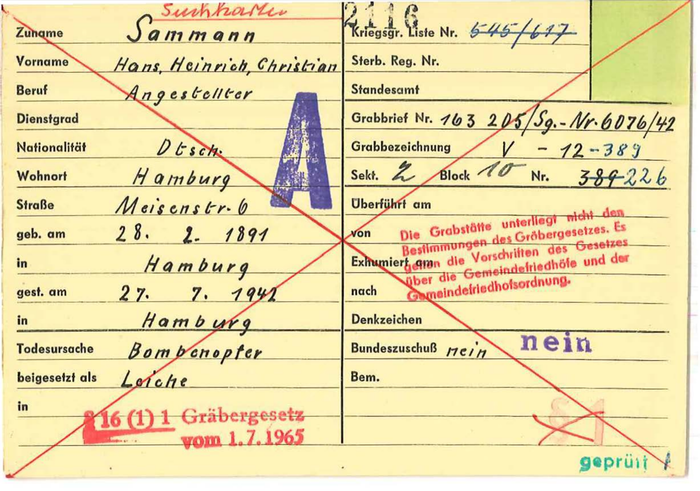 Suchkarte
2116
Zuname Sammann
Vorname Hans, Heinrich, Christian
Beruf Angestellter
Dienstgrad
Nationalität Dtsch.
Wohnort Hamburg
Straße Meisenstr. 6
geb. am 28. 2. 1891
in Hamburg
gest. am 27. 7. 1942
in Hamburg
Todesursache Bombenopfer
beigesetzt als Leiche
in
§ 16 (1) 1 Gräbergesetz
vom 1.7.1965
A
Kriegsgr. Liste Nr. 545/617
Sterb. Reg. Nr.
Standesamt
Grabbrief Nr. 163 205/Sg.-Nr. 6076/42
Grabbezeichnung V - 12 - 389
Sekt. 2 Block 10 Nr. 389 226
Überführt am
von
Exhumiert am
nach
Die Grabstätte unterliegt nicht den
Bestimmungen des Gräbergesetzes. Es
gelten die Vorschriften des Gesetzes
über die Gemeindefriedhöfe und der
Gemeindefriedhofsordnung.
Denkzeichen
Bundeszuschuß nein nein
Bem.
§ 1
geprüft